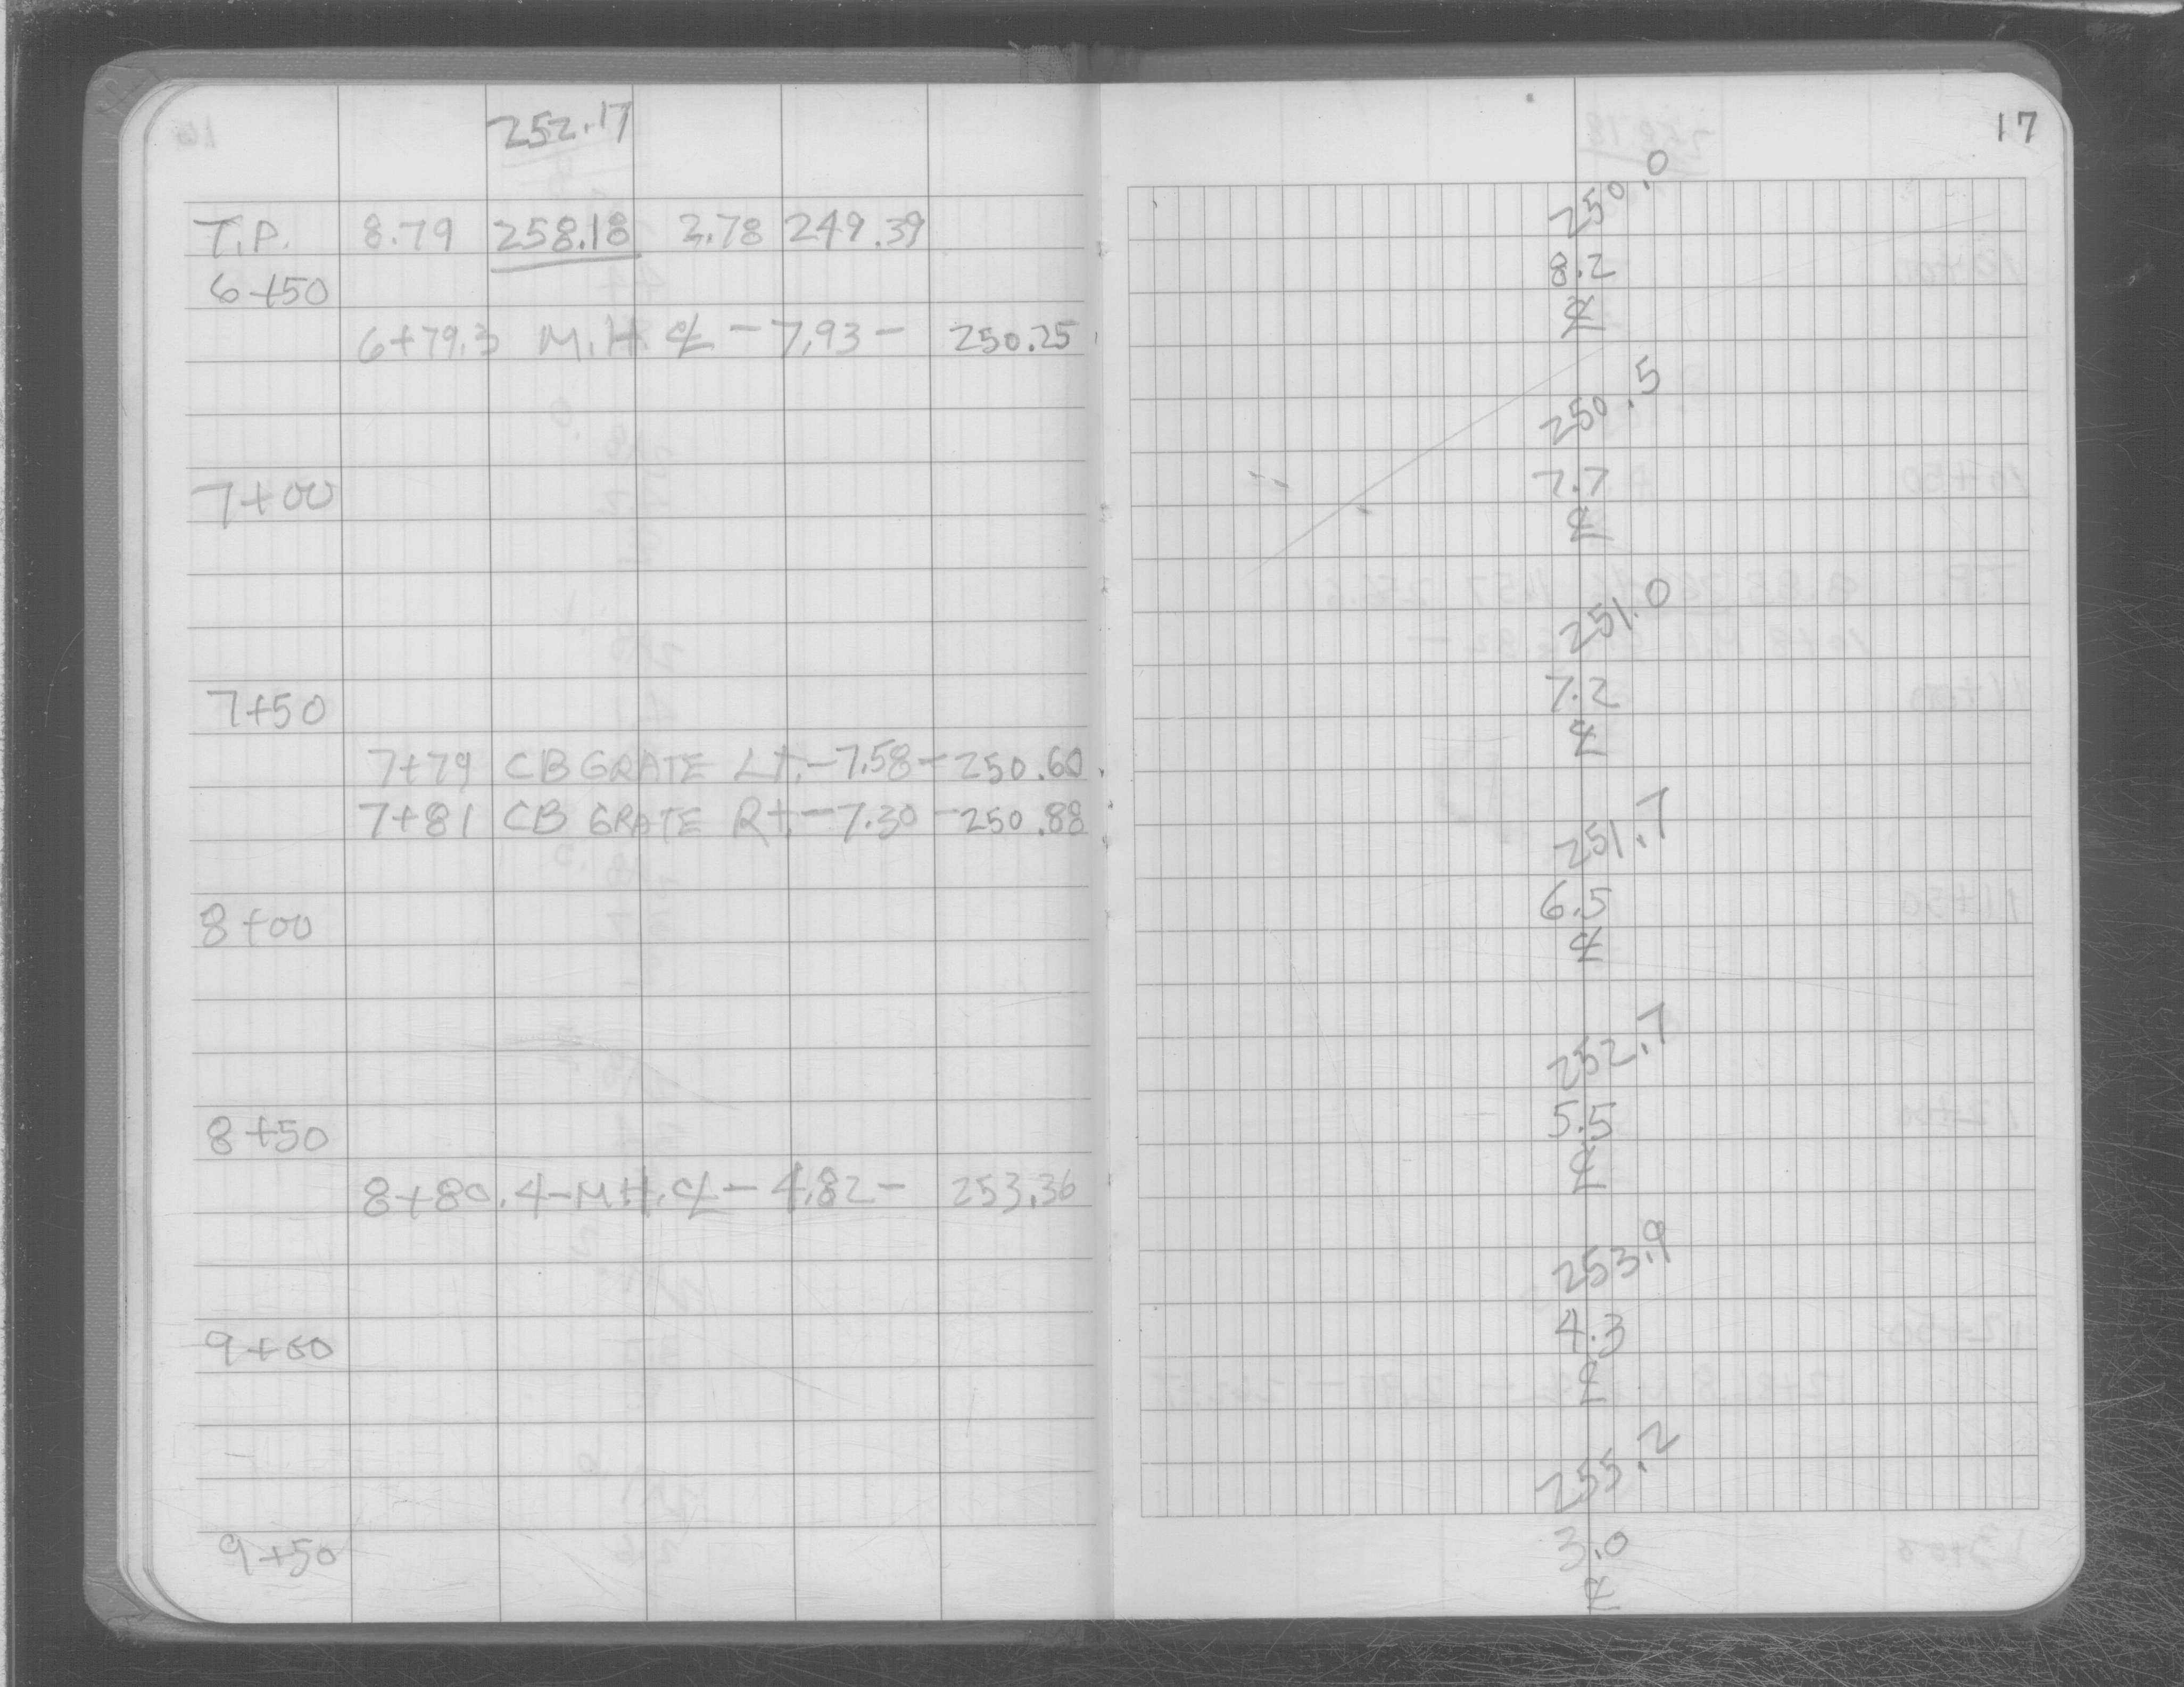 252.17
T.P. 8.79 258.18 2.78 249.39
6+50
6+79.3 M.H. ℄ - 7.93 - 250.25
7+00
7+50
7+79 CB GRATE Lt. - 7.58 - 250.60
7+81 CB GRATE Rt. - 7.30 - 250.88
8+00
8+50
8+80.4 - M.H. ℄ - 4.82 - 253.36
9+00
9+50
17
250.0
8.2
℄
250.5
7.7
℄
251.0
7.2
℄
251.7
6.5
℄
252.7
5.5
℄
253.9
4.3
℄
255.2
3.0
℄